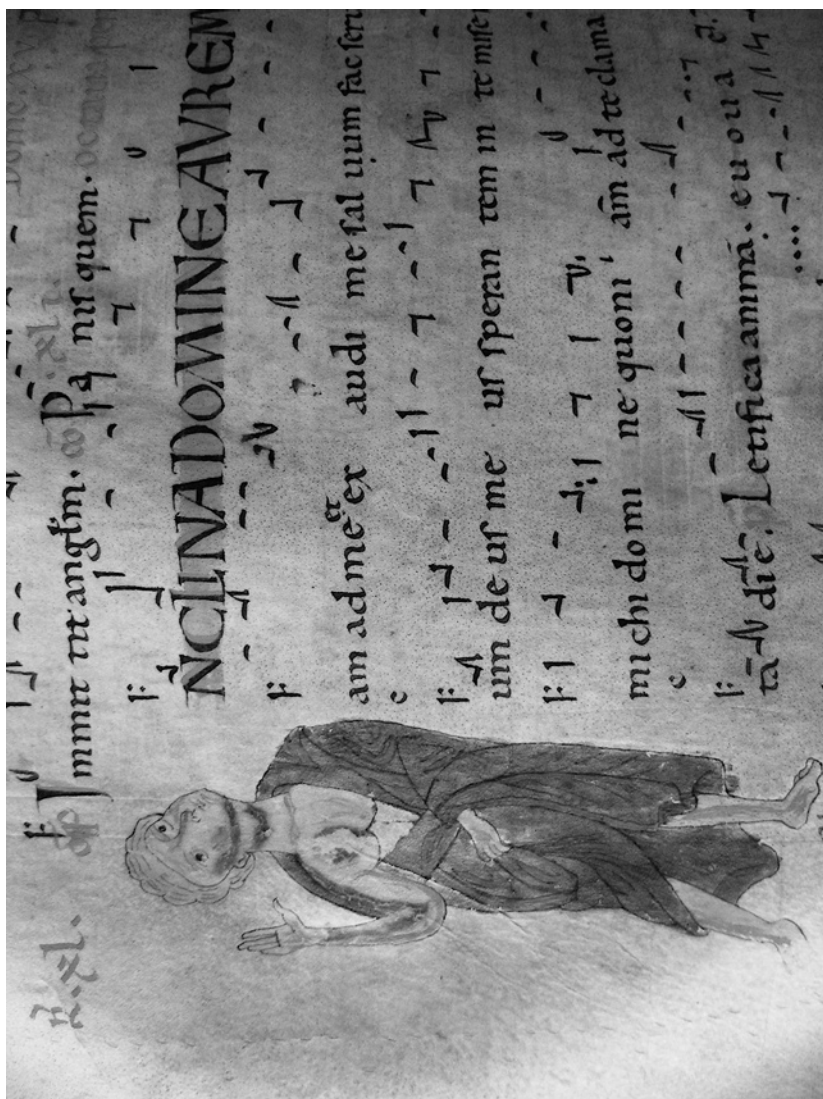 Immit tit angłm. c̄o P a nis quem.
NCLINA DOMINE AVREM
am ad me et ex audi me sal uum fac seru
um de us me us speran tem in te mise
mi chi do mi ne quoni am ad te clama
ta di e. Letifica animā. eu ou a e.